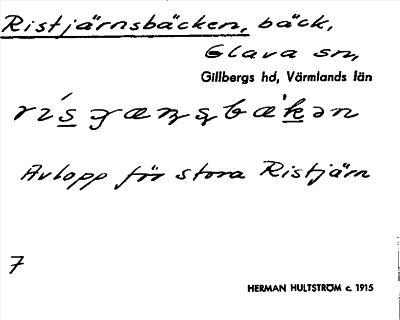 Ristjärnsbäcken, bäck,
Glava sn,
Gillbergs hd, Värmlands län
Avlopp för stora Ristjärn
7
HERMAN HULTSTRÖM c. 1915